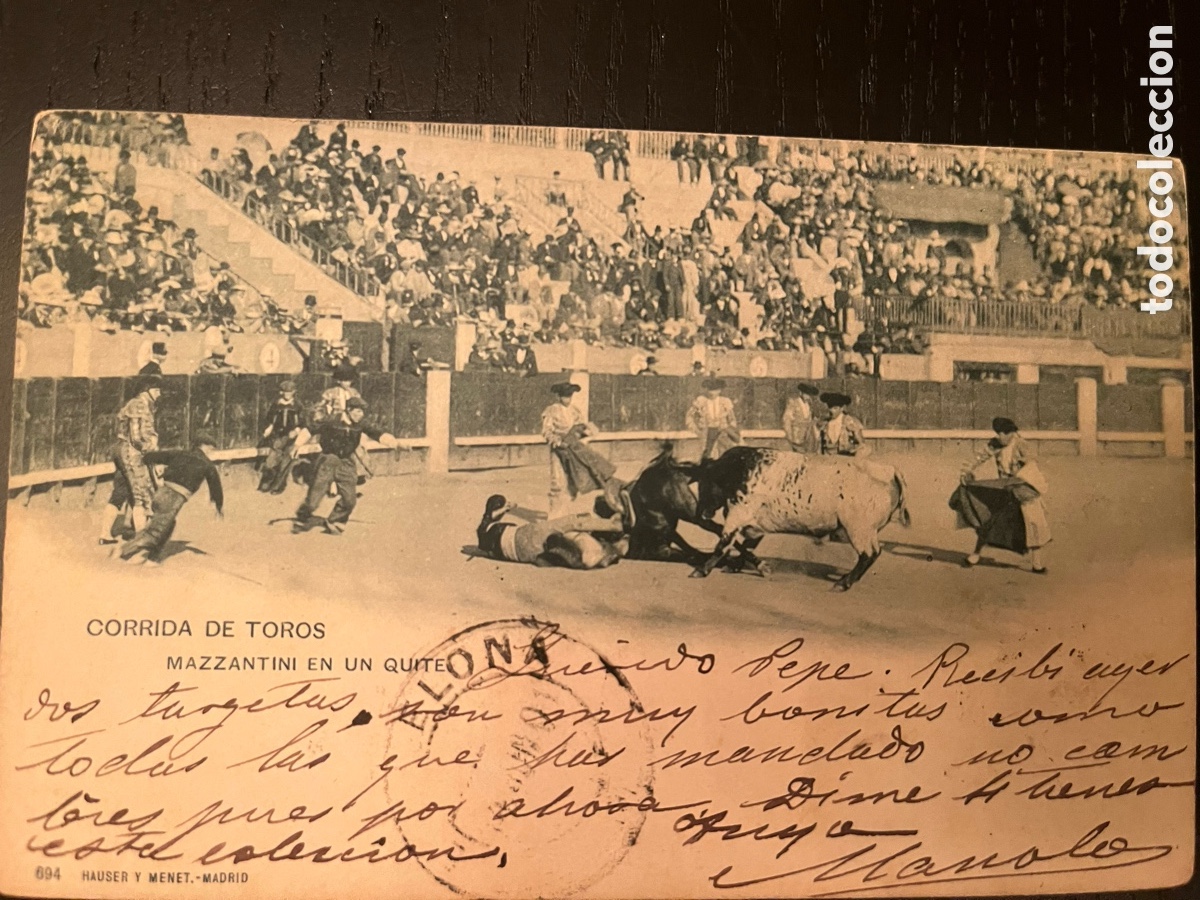 todocoleccion
CORRIDA DE TOROS
MAZZANTINI EN UN QUITE
Querido Pepe. Recibi ayer
dos targetas, son muy bonitas como
todas las que has mandado no cam
bies pues por ahora. Dime si tienes
esta coleccion,
Tuyo
Manolo
694 HAUSER Y MENET.-MADRID